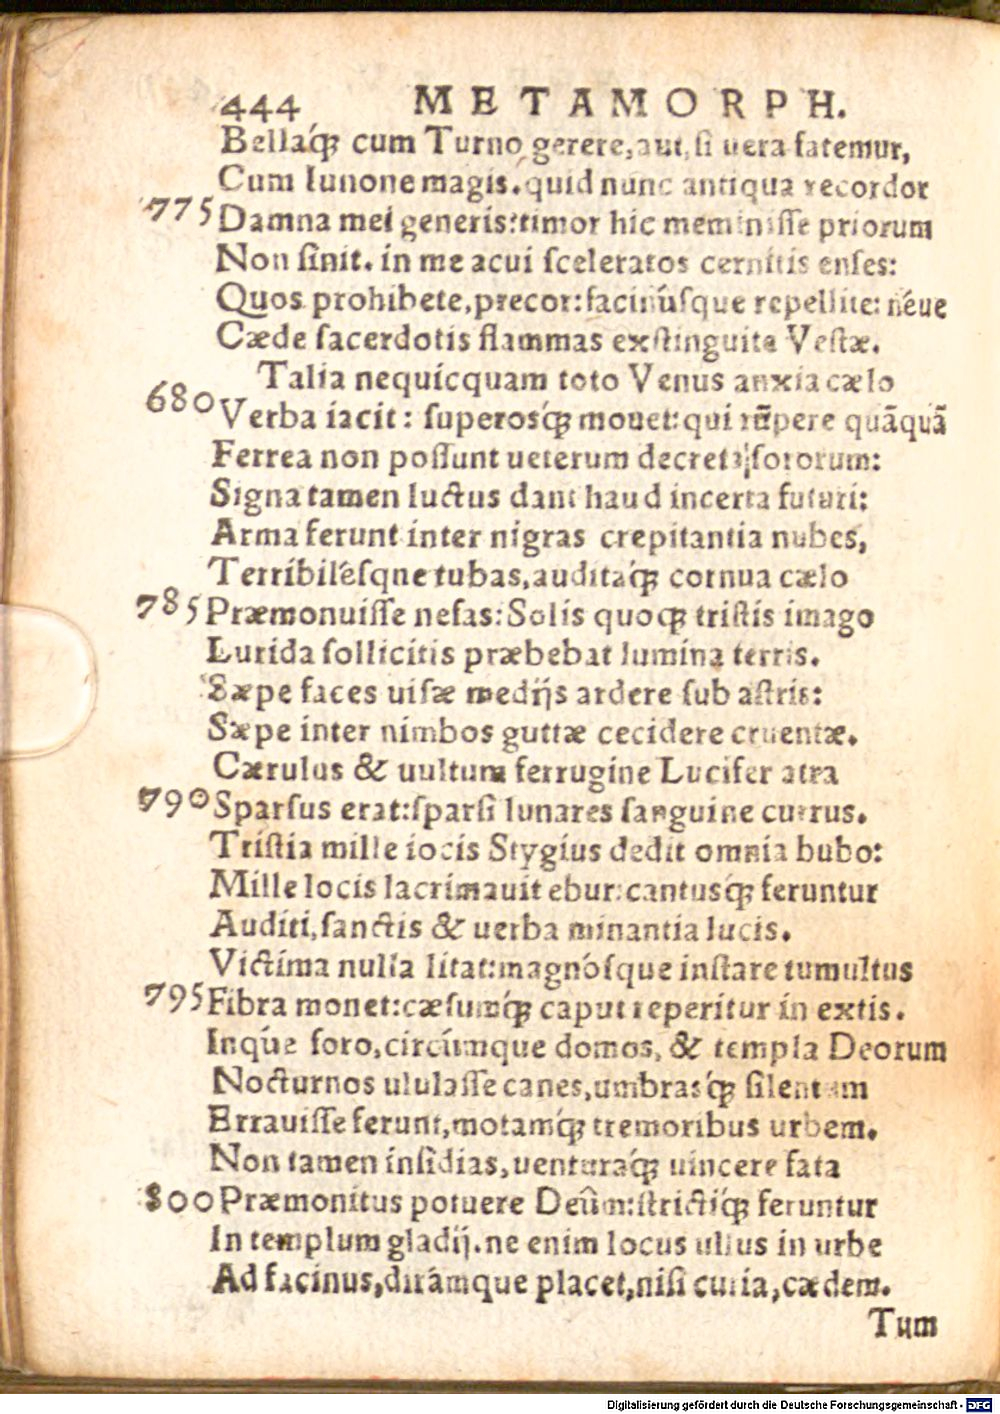 444 METAMORPH.
Bellaq́ꝫ cum Turno gerere, aut, ſi uera fatemur,
Cum Iunone magis. quid nunc antiqua recordor
775 Damna mei generis: timor hic meminiſſe priorum
Non ſinit. in me acui ſceleratos cernitis enſes:
Quos prohibete, precor: facinúſque repellite: néue
Cæde ſacerdotis flammas exſtinguite Veſtæ.
Talia nequicquam toto Venus anxia cælo
680 Verba iacit: ſuperosq́ꝫ mouet: qui rūpere quãquã
Ferrea non poſſunt ueterum decreta ſororum:
Signa tamen luctus dant haud incerta futuri:
Arma ferunt inter nigras crepitantia nubes,
Terribiléſqne tubas, auditaq́ꝫ cornua cælo
785 Præmonuiſſe nefas: Solis quoqꝫ triſtis imago
Lurida ſollicitis præbebat lumina terris.
Sæpe faces uiſæ medijs ardere ſub aſtris:
Sæpe inter nimbos guttæ cecidere cruentæ.
Cærulus & uultum ferrugine Lucifer atra
790 Sparſus erat: ſparſi lunares ſanguine currus.
Triſtia mille iocis Stygius dedit omnia bubo:
Mille locis lacrimauit ebur: cantusq́ꝫ feruntur
Auditi, ſanctis & uerba minantia lucis.
Victima nulla litat: magnóſque inſtare tumultus
795 Fibra monet: cæſumq́ꝫ caput reperitur in extis.
Inqúe foro, circúmque domos, & templa Deorum
Nocturnos ululaſſe canes, umbrasq́ꝫ ſilentum
Errauiſſe ferunt, motamq́ꝫ tremoribus urbem.
Non tamen inſidias, uenturaq́ꝫ uincere fata
800 Præmonitus potuere Deûm: ſtrictiq́ꝫ feruntur
In templum gladij. ne enim locus ullus in urbe
Ad facinus, dirámque placet, niſi curia, cædem.
Tum
Digitalisierung gefördert durch die Deutsche Forschungsgemeinschaft - DFG